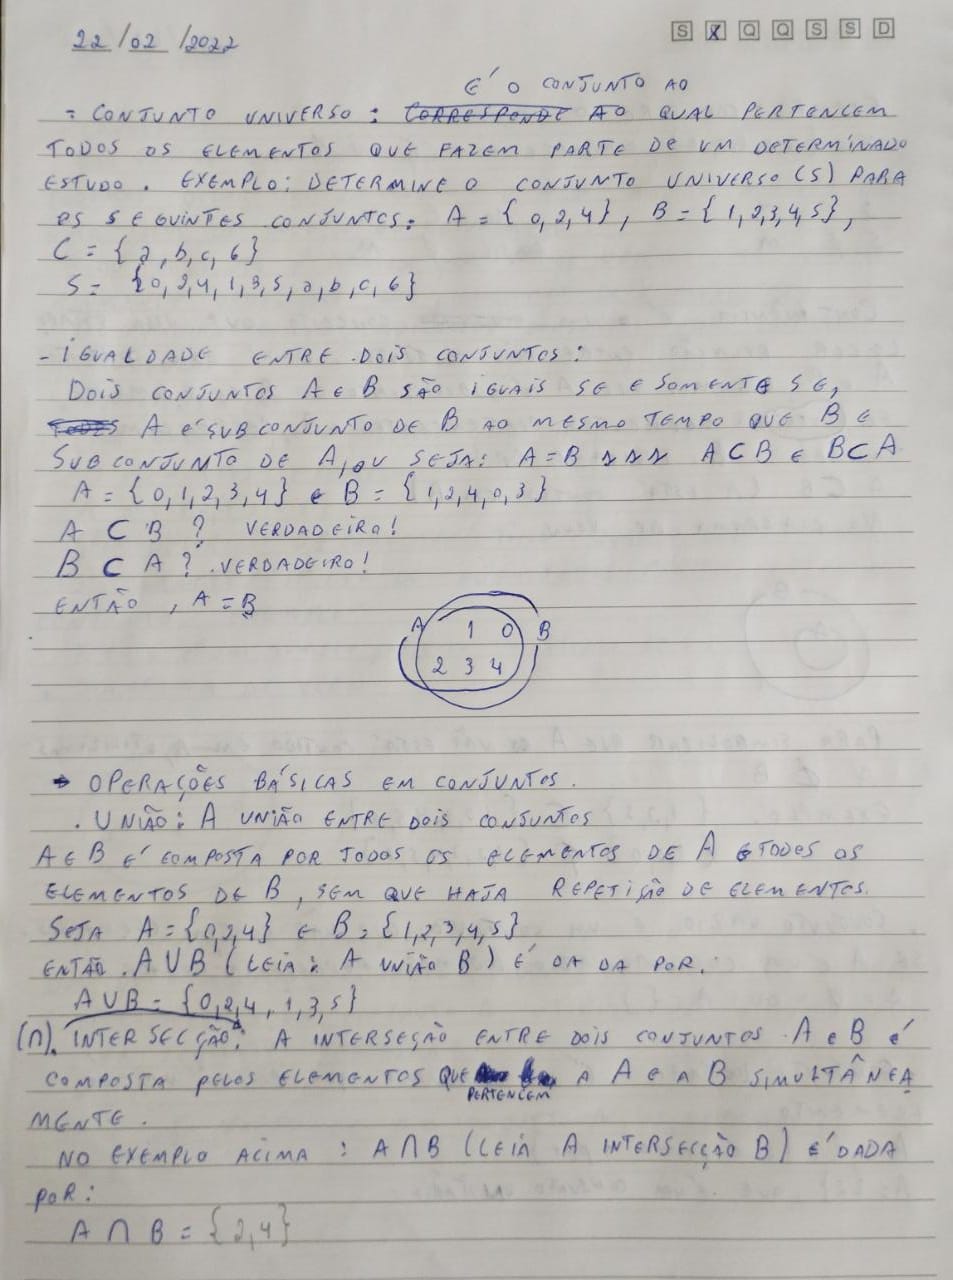 22/02/2022 S X Q Q S S D
É O CONJUNTO AO
= CONJUNTO UNIVERSO: CORRESPONDE AO QUAL PERTENCEM
TODOS OS ELEMENTOS QUE FAZEM PARTE DE UM DETERMINADO
ESTUDO. EXEMPLO: DETERMINE O CONJUNTO UNIVERSO (S) PARA
OS SEGUINTES CONJUNTOS: A = {0,2,4}, B = {1,2,3,4,5},
C = {a,b,c,6}
S = {0,2,4,1,3,5,a,b,c,6}
- IGUALDADE ENTRE DOIS CONJUNTOS:
DOIS CONJUNTOS A E B SÃO IGUAIS SE E SOMENTE SE,
A É SUBCONJUNTO DE B AO MESMO TEMPO QUE B E
SUBCONJUNTO DE A, OU SEJA: A = B A ⊂ B E B ⊂ A
A = {0,1,2,3,4} e B = {1,2,4,0,3}
A ⊂ B ? VERDADEIRO!
B ⊂ A ? VERDADEIRO!
ENTÃO, A = B
A 1 0 B
2 3 4
→ OPERAÇÕES BÁSICAS EM CONJUNTOS.
. UNIÃO: A UNIÃO ENTRE DOIS CONJUNTOS
A E B É COMPOSTA POR TODOS OS ELEMENTOS DE A E TODOS OS
ELEMENTOS DE B, SEM QUE HAJA REPETIÇÃO DE ELEMENTOS.
SEJA A = {0,2,4} E B = {1,2,3,4,5}
ENTÃO. A ∪ B (LEIA: A UNIÃO B) É DADA POR.
A ∪ B = {0,2,4,1,3,5}
(∩). INTERSECÇÃO: A INTERSEÇÃO ENTRE DOIS CONJUNTOS A e B é
COMPOSTA PELOS ELEMENTOS QUE A A E A B SIMULTÂNEA
PERTENCEM
MENTE.
NO EXEMPLO ACIMA: A ∩ B (LEIA A INTERSECÇÃO B) É DADA
POR:
A ∩ B = {2,4}